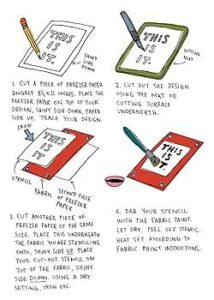 THIS
IS
IT.
SHINY
SIDE
DOWN
THIS
IS
IT.
CUTTING
MAT
1. CUT A PIECE OF FREEZER PAPER
ROUGHLY 8½ X 11 INCHES. PLACE THE
FREEZER PAPER ON TOP OF YOUR
DESIGN, SHINY SIDE DOWN, PAPER
SIDE UP. TRACE YOUR DESIGN.
2. CUT OUT THE DESIGN
USING THE MAT OR
CUTTING SURFACE
UNDERNEATH.
IRON
THIS
IS
IT.
STENCIL
FABRIC
SECOND PIECE OF
FREEZER PAPER
THIS
IS
IT.
3. CUT ANOTHER PIECE OF
FREEZER PAPER OF THE SAME
SIZE. PLACE THIS UNDERNEATH
THE FABRIC YOU ARE STENCILING
ONTO, SHINY SIDE UP. PLACE
YOUR CUT-OUT STENCIL ON
TOP OF THE FABRIC, SHINY
SIDE DOWN. USING A DRY
SETTING, IRON ON.
4. DAB YOUR STENCIL
WITH THE FABRIC PAINT.
LET DRY. PEEL OFF STENCIL.
HEAT SET ACCORDING TO
FABRIC PAINT INSTRUCTIONS.